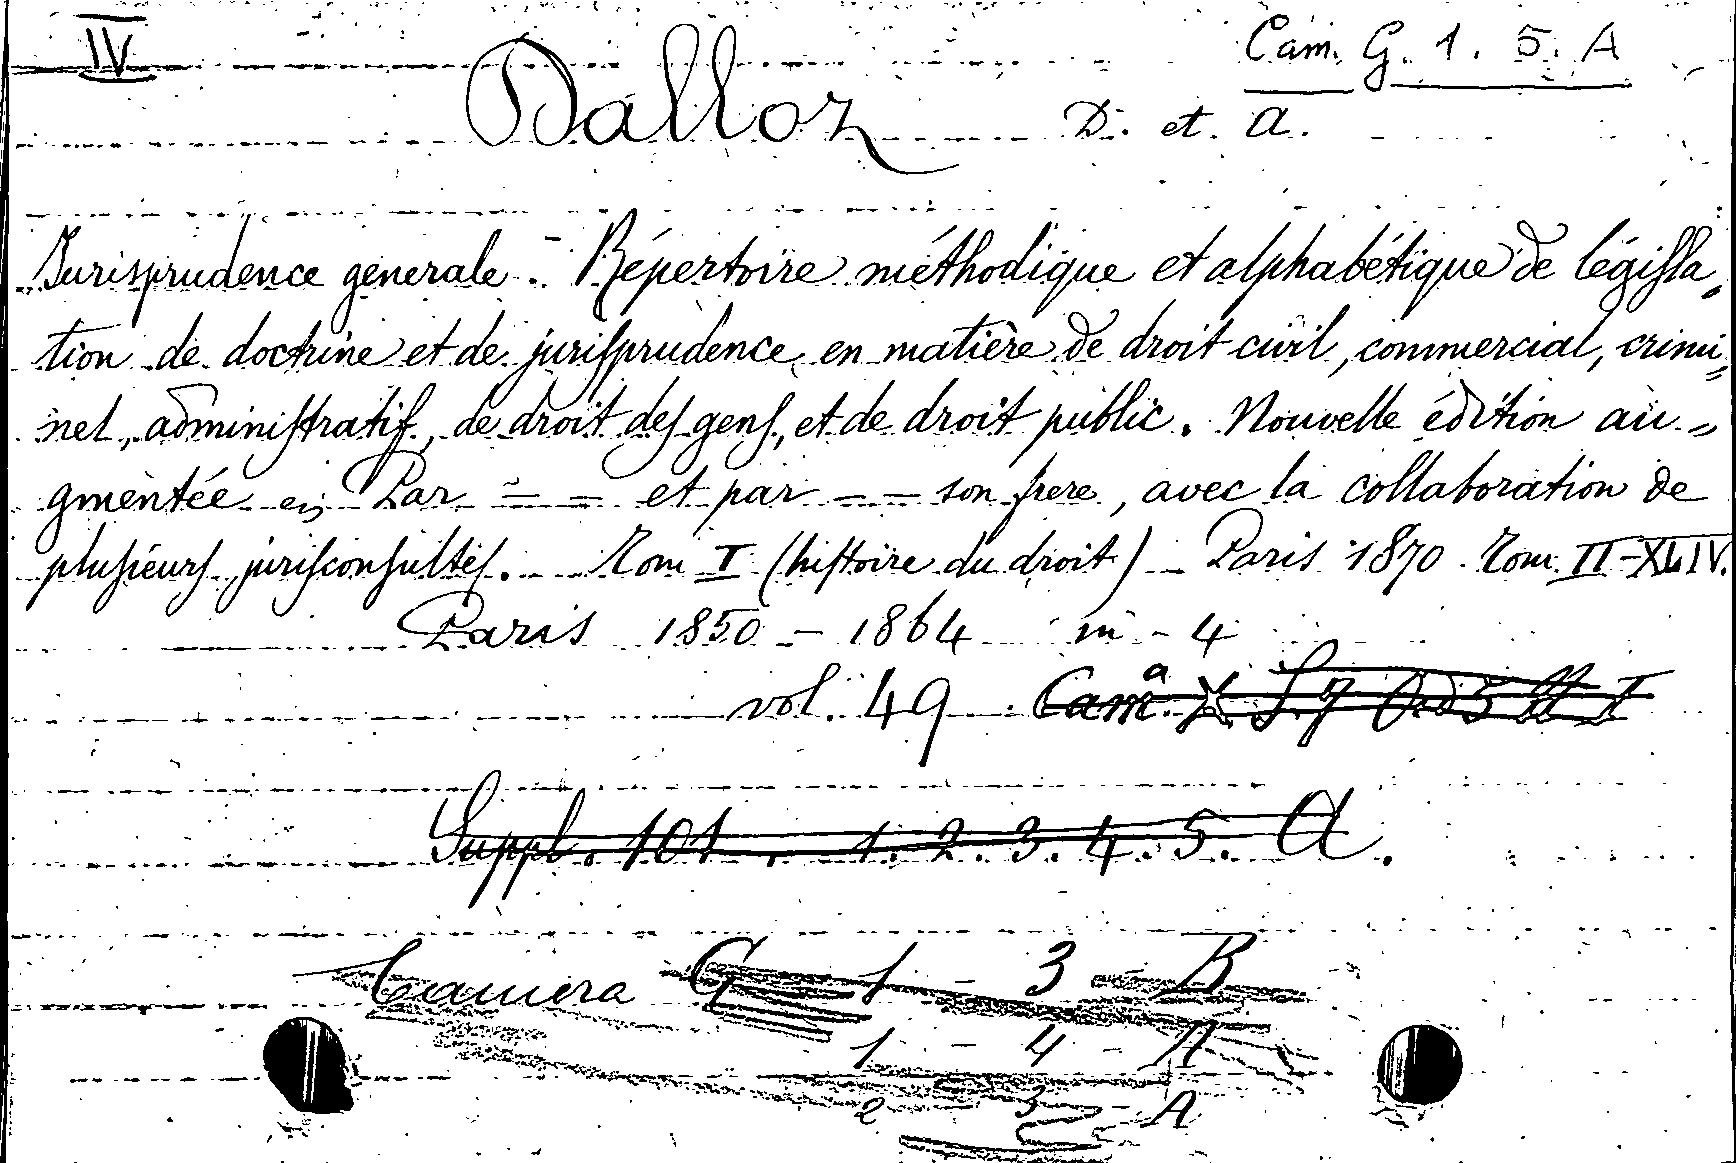 IV
Cam. G. 1. 5. A
Dalloz D. et. A.
Jurisprudence generale. Répertoire méthodique et alphabétique de législa„
tion de doctrine et de jurisprudence en matière de droit civil, commercial, crimi„
nel, administratif, de droit des gens, et de droit public. Nouvelle édition au„
gmentée Par = = et par = = son frere, avec la collaboration de
plusieurs jurisconsultes. Tom I (histoire du droit) – Paris 1870. Tom. II-XLIV.
Paris 1850 – 1864 in - 4
vol. 49 Cam.ª
Suppl. 101. 1. 2. 3. 4. 5. A.
Camera G 1 - 3 - B
1 - 4 - A
2 - 3 - A